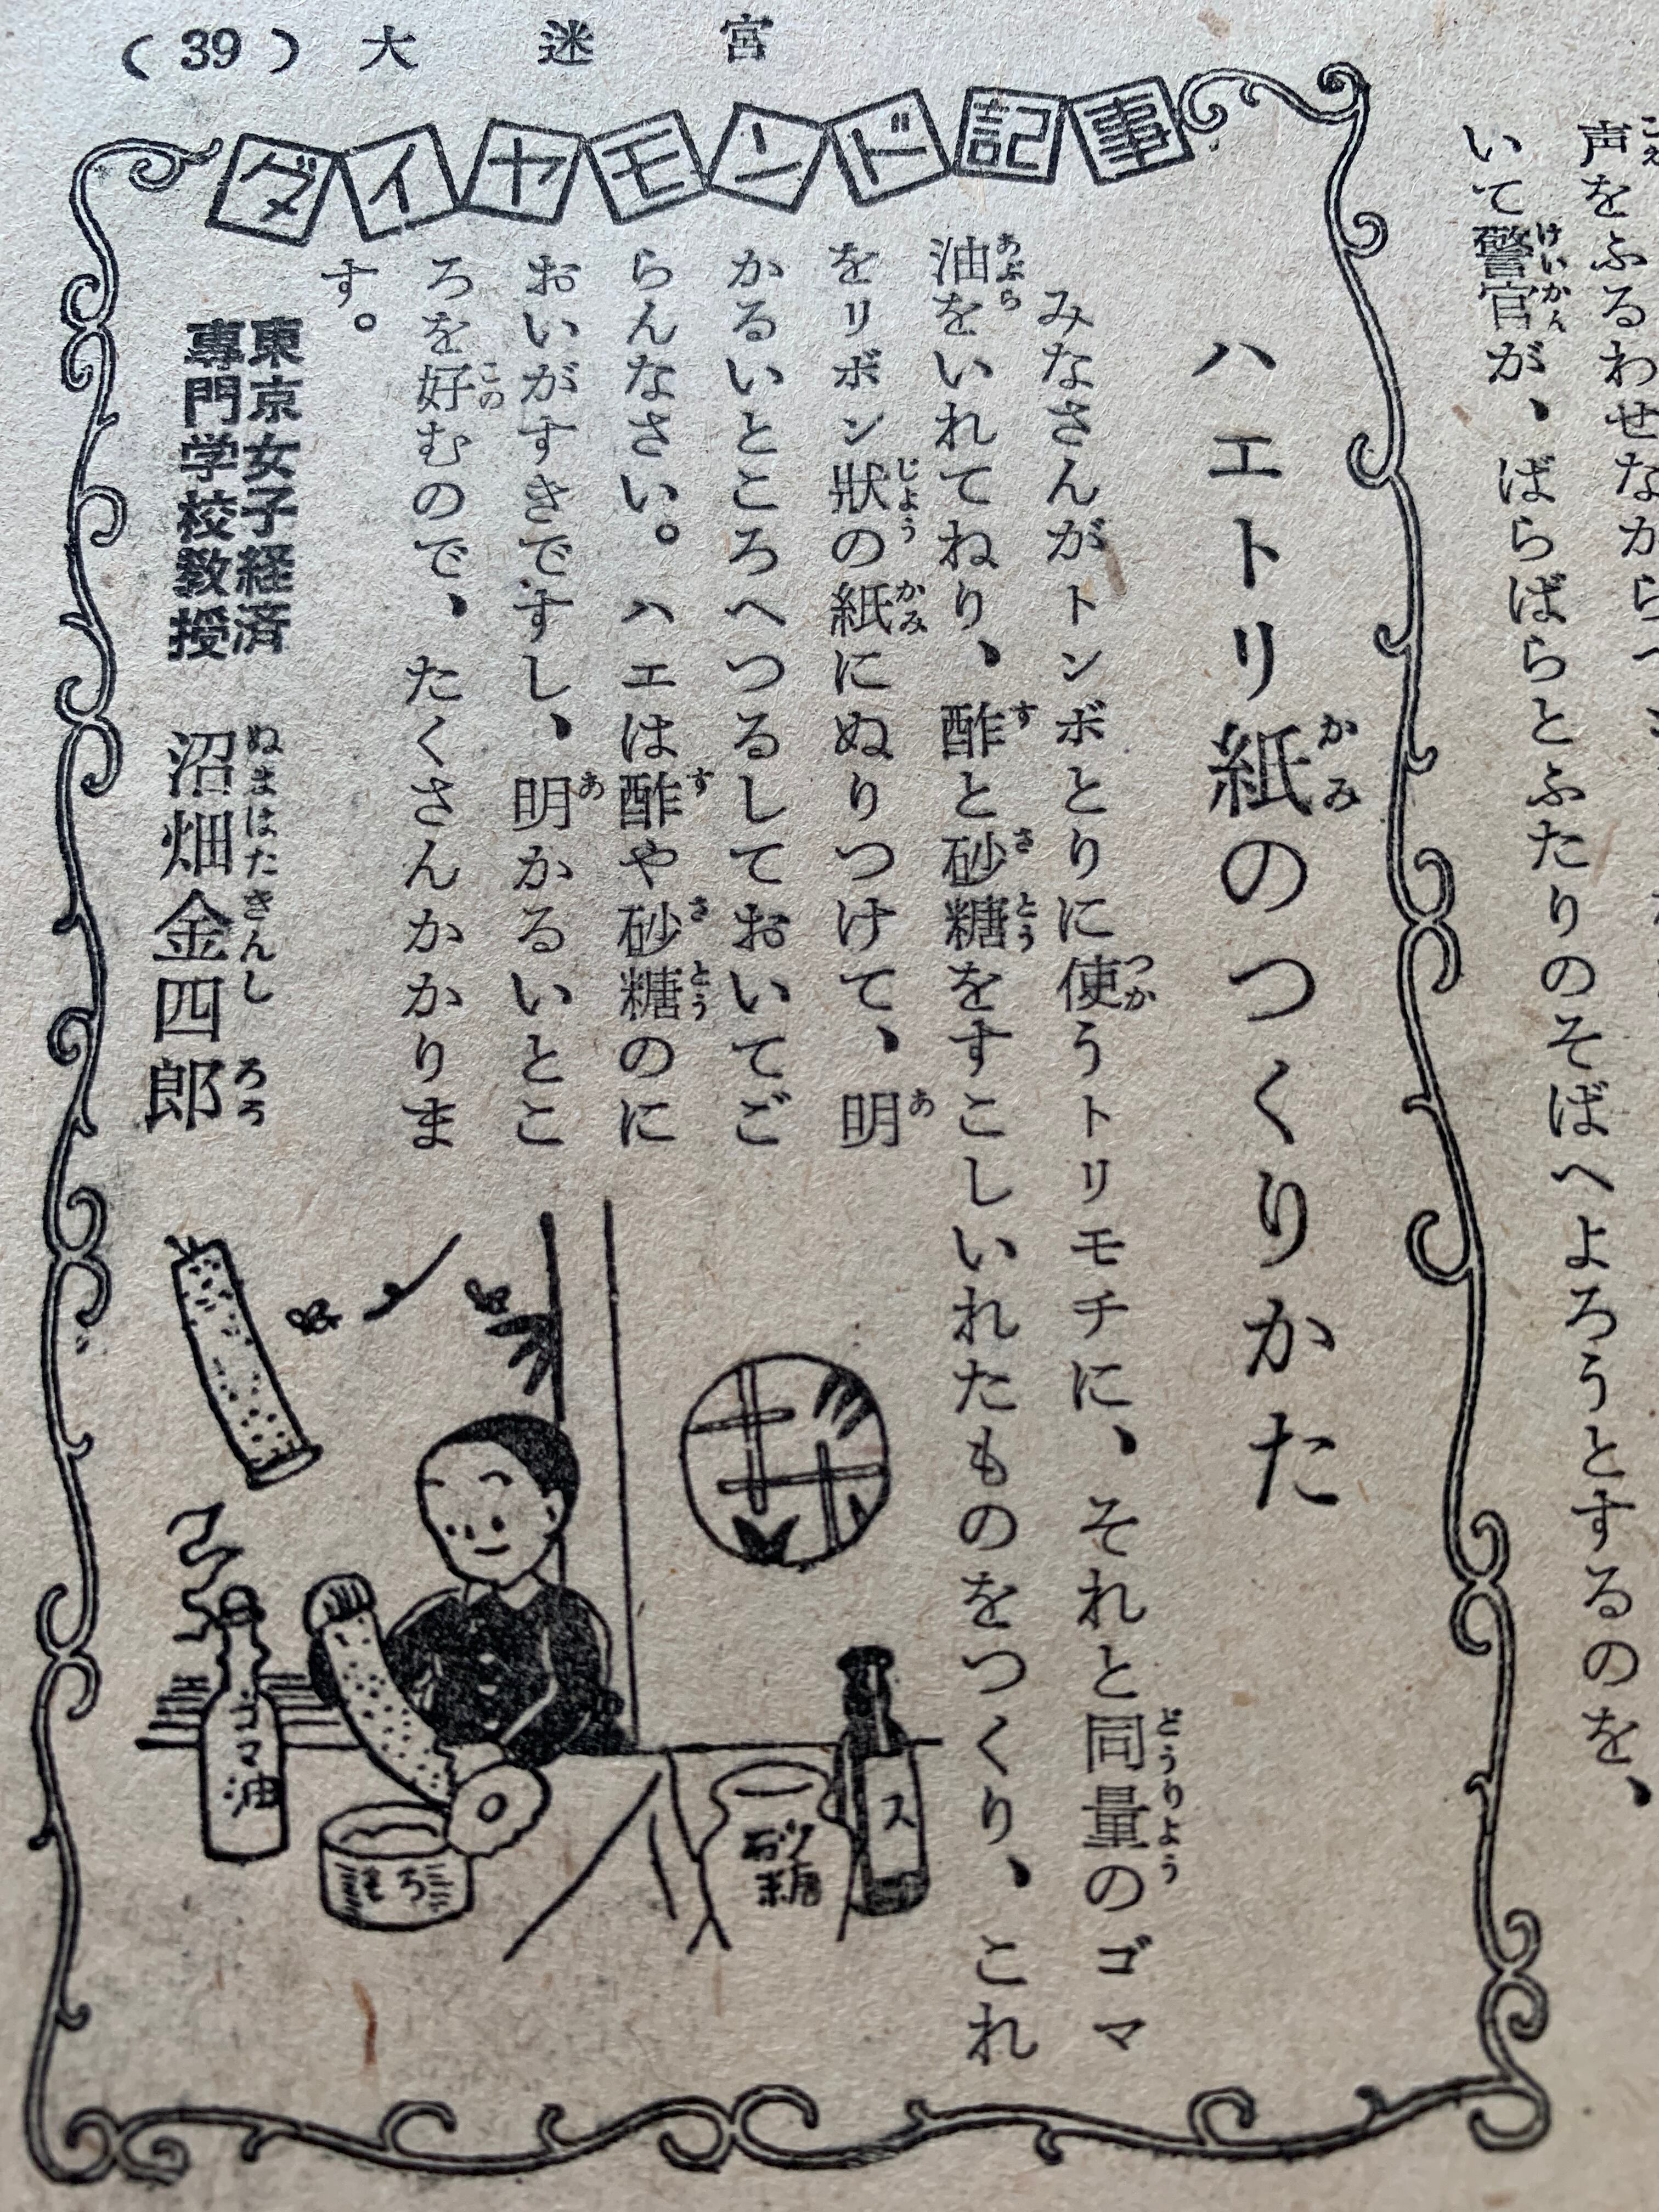 (39) 大迷宮
こえ
声をふるわせなが
けいかん
いて警官が、ばらばらとふたりのそばへよろうとするのを、
ダイヤモンド記事
かみ
ハエトリ紙のつくりかた
つか どうりよう
みなさんがトンボとりに使うトリモチに、それと同量のゴマ
あぶら す さとう
油をいれてねり、酢と砂糖をすこしいれたものをつくり、これ
じよう かみ あ
をリボン狀の紙にぬりつけて、明
かるいところへつるしておいてご
す さとう
らんなさい。ハエは酢や砂糖のに
あ
おいがすきですし、明かるいとこ
この
ろを好むので、たくさんかかりま
す。
東京女子経済
專門学校教授
ぬまはたきんしろう
沼畑金四郎
ス
砂糖
ゴマ油